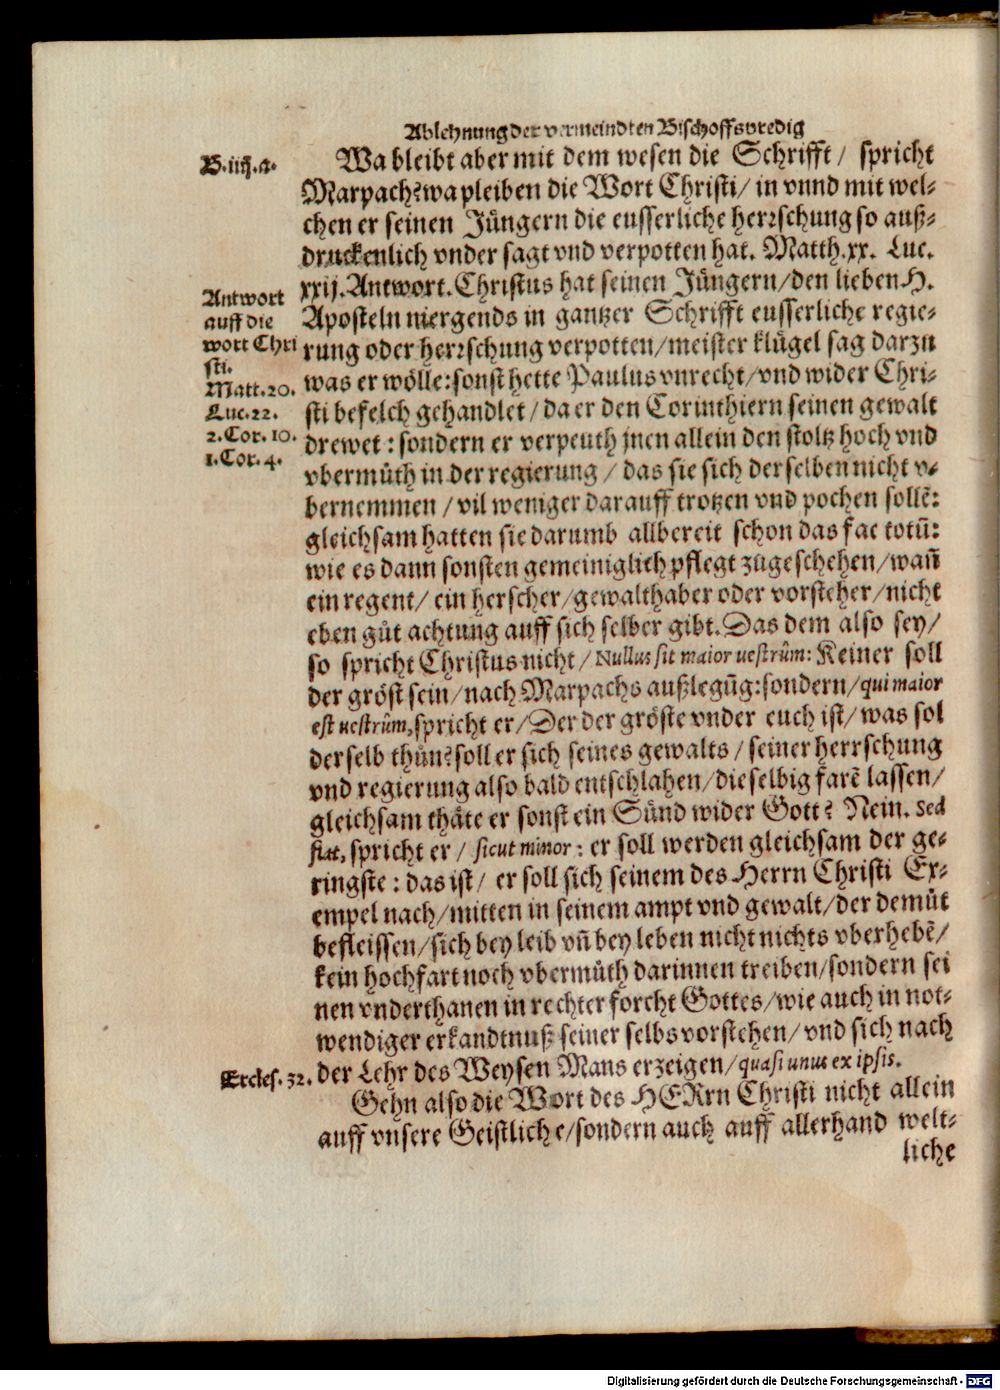 Ablehnung der vermeindten Bischoffspredig
B.iiij.a.
Wa bleibt aber mit dem wesen die Schrifft/ spricht
Marpach? wa pleiben die Wort Christi/ in vnnd mit wel-
chen er seinen Jüngern die eusserliche herrschung so auß-
druckenlich vnder sagt vnd verpotten hat. Matth.xx. Luc.
xxij. Antwort. Christus hat seinen Jüngern/ den lieben H.
Antwort
auff die
wort Chri
sti.
Matt.20.
Luc.22.
2.Cor.10.
1.Cor.4.
Aposteln niergends in gantzer Schrifft eusserliche regie-
rung oder herrschung verpotten/ meister klügel sag darzu
was er wölle: sonst hette Paulus vnrecht/ vnd wider Chri-
sti befelch gehandlet/ da er den Corinthiern seinen gewalt
drewet: sondern er verpeuth jnen allein den stoltz hoch vnd
vbermůth in der regierung/ das sie sich derselben nicht v-
bernemmen/ vil weniger darauff trotzen vnd pochen sollẽ:
gleichsam hatten sie darumb allbereit schon das fac totũ:
wie es dann sonsten gemeiniglich pflegt zůgeschehen/ wañ
ein regent/ ein herscher/ gewalthaber oder vorsteher/ nicht
eben gůt achtung auff sich selber gibt. Das dem also sey/
so spricht Christus nicht/ Nullus sit maior uestrûm: Keiner soll
der gröst sein/ nach Marpachs außlegũg: sondern/ qui maior
est uestrûm, spricht er/ Der der gröste vnder euch ist/ was sol
derselb thůn? soll er sich seines gewalts/ seiner herrschung
vnd regierung also bald entschlahen/ dieselbig farẽ lassen/
gleichsam thäte er sonst ein Sünd wider Gott? Nein. Sed
fiat, spricht er/ sicut minor: er soll werden gleichsam der ge-
ringste: das ist/ er soll sich seinem des Herrn Christi Ex-
empel nach/ mitten in seinem ampt vnd gewalt/ der demůt
befleissen/ sich bey leib vñ bey leben nicht nichts vberhebẽ/
kein hochfart noch vbermůth darinnen treiben/ sondern sei
nen vnderthanen in rechter forcht Gottes/ wie auch in not-
wendiger erkandtnuß seiner selbs vorstehen/ vnd sich nach
Eccles. 32.
der Lehr des Weysen Mans erzeigen/ quasi unus ex ipsis.
Gehn also die Wort des HERrn Christi nicht allein
auff vnsere Geistliche/ sondern auch auff allerhand welt-
liche
Digitalisierung gefördert durch die Deutsche Forschungsgemeinschaft - DFG